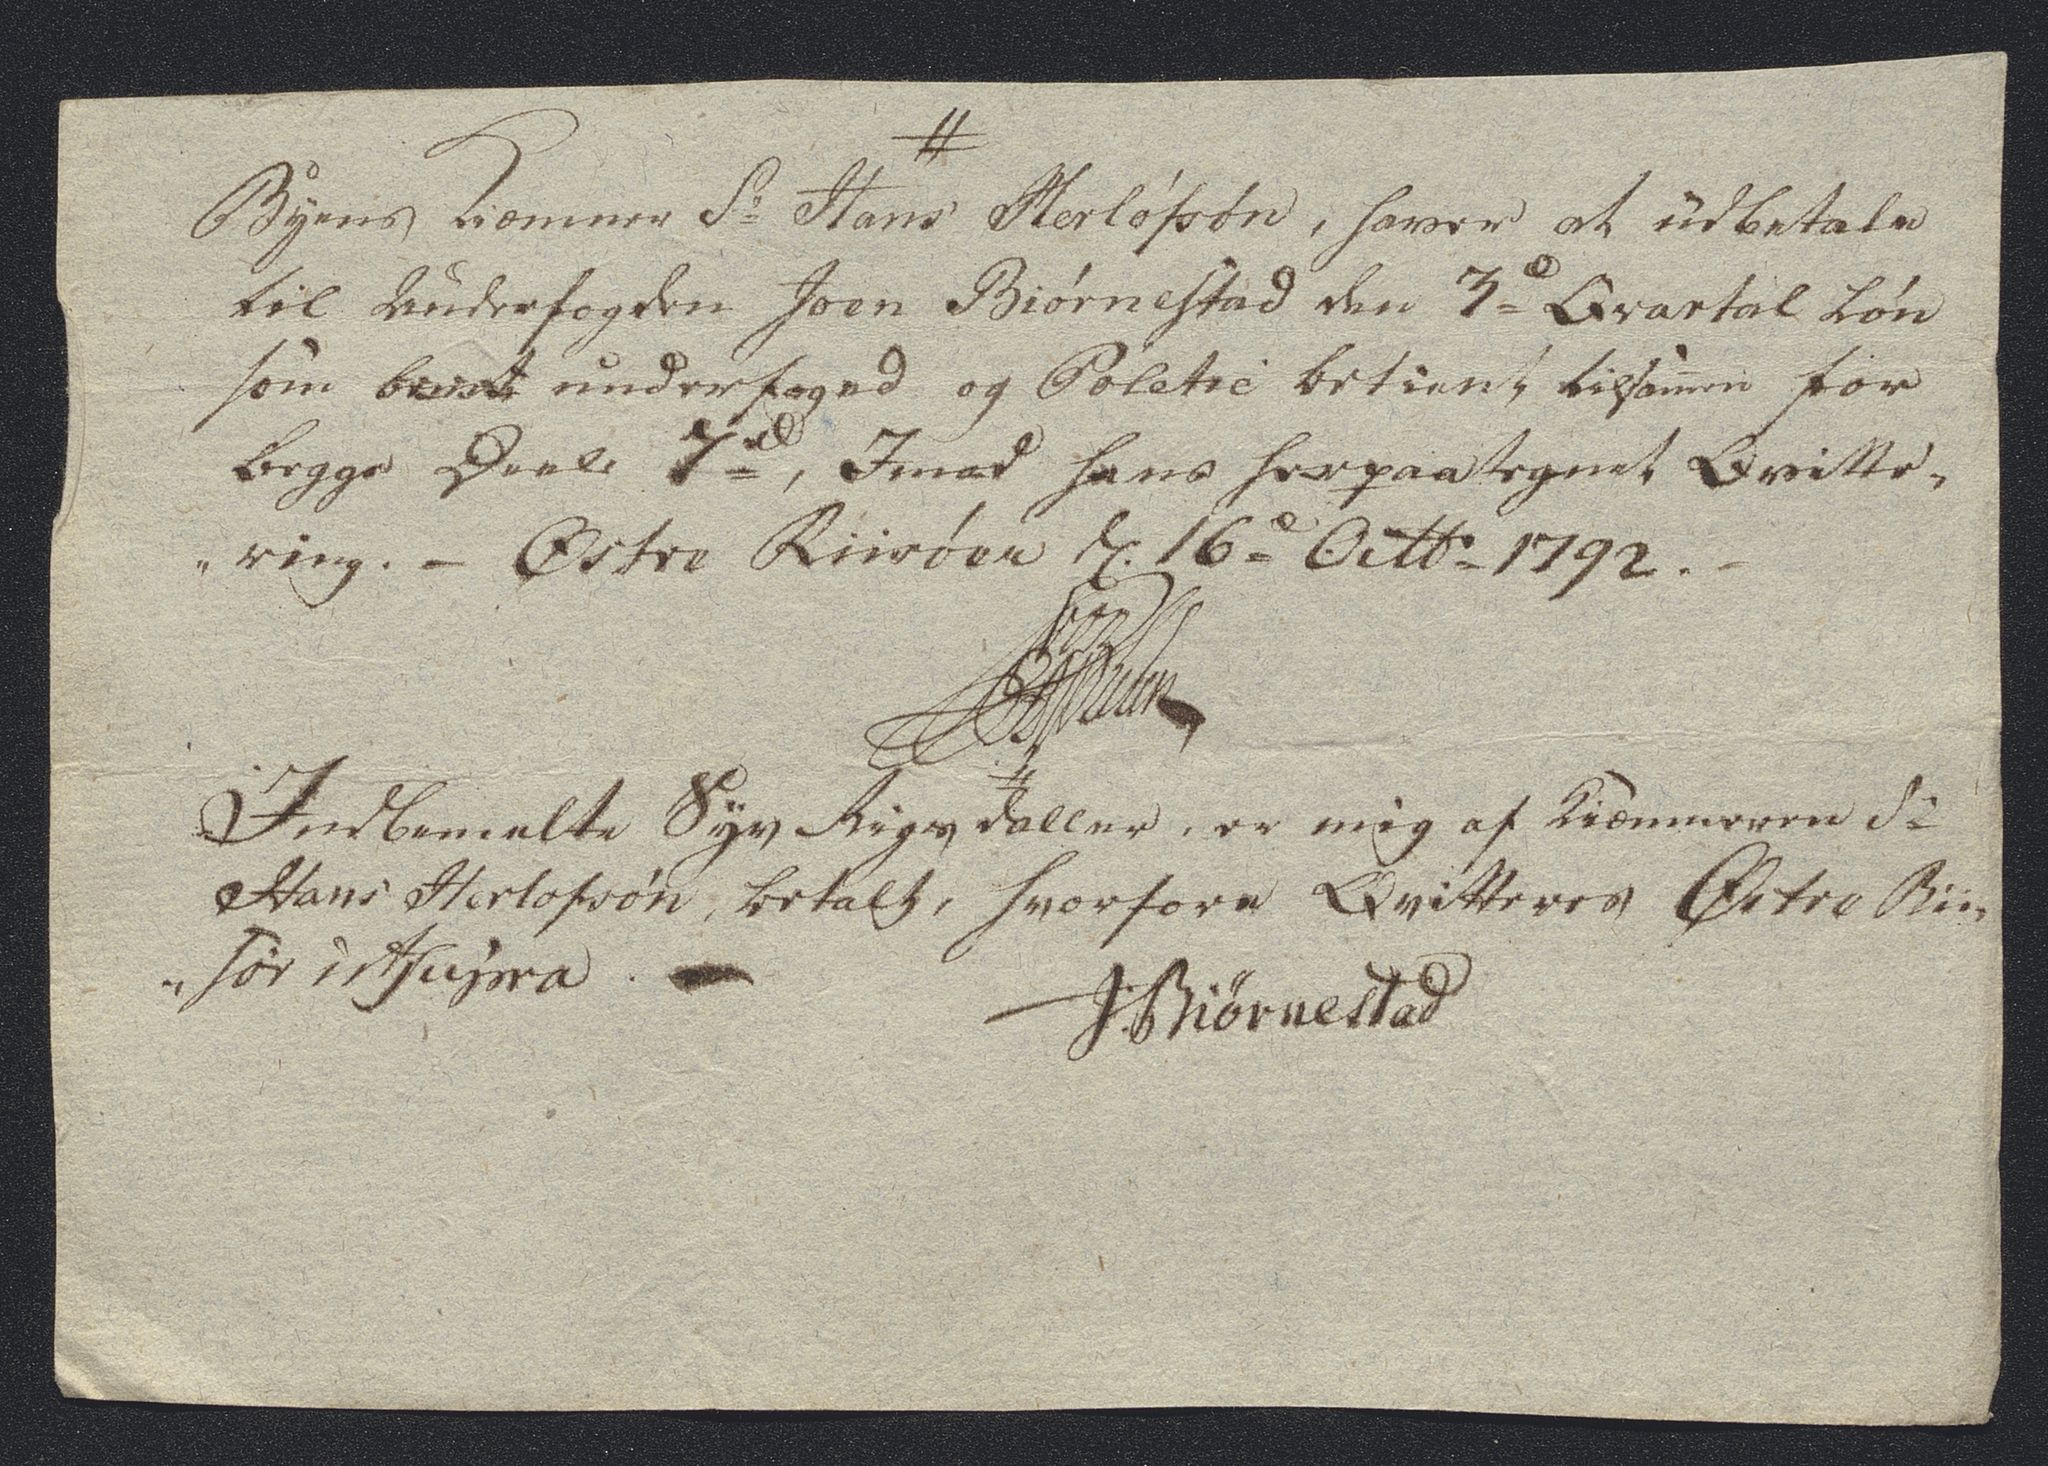 Byens Kiemner Sr Hans Herlofsøn, haver at udbetale
til Underfogden Joen Biørnestad den 3d Qvartal Løn
som underfoged og Poletie betient, tilsamen for
begge Deele 7rd, Imod hans herpaategnet Qvitte„
„ring. – Østre Riisøer d. 16d Octbr 1792. –
Indbemelte Syv Rigsdaller, er mig af Kiemneren Sr
Hans Herlofsøn, betalt, hvorfore Qvitteres Østre Rii„
„søer ut Supra.
J Biørnestad